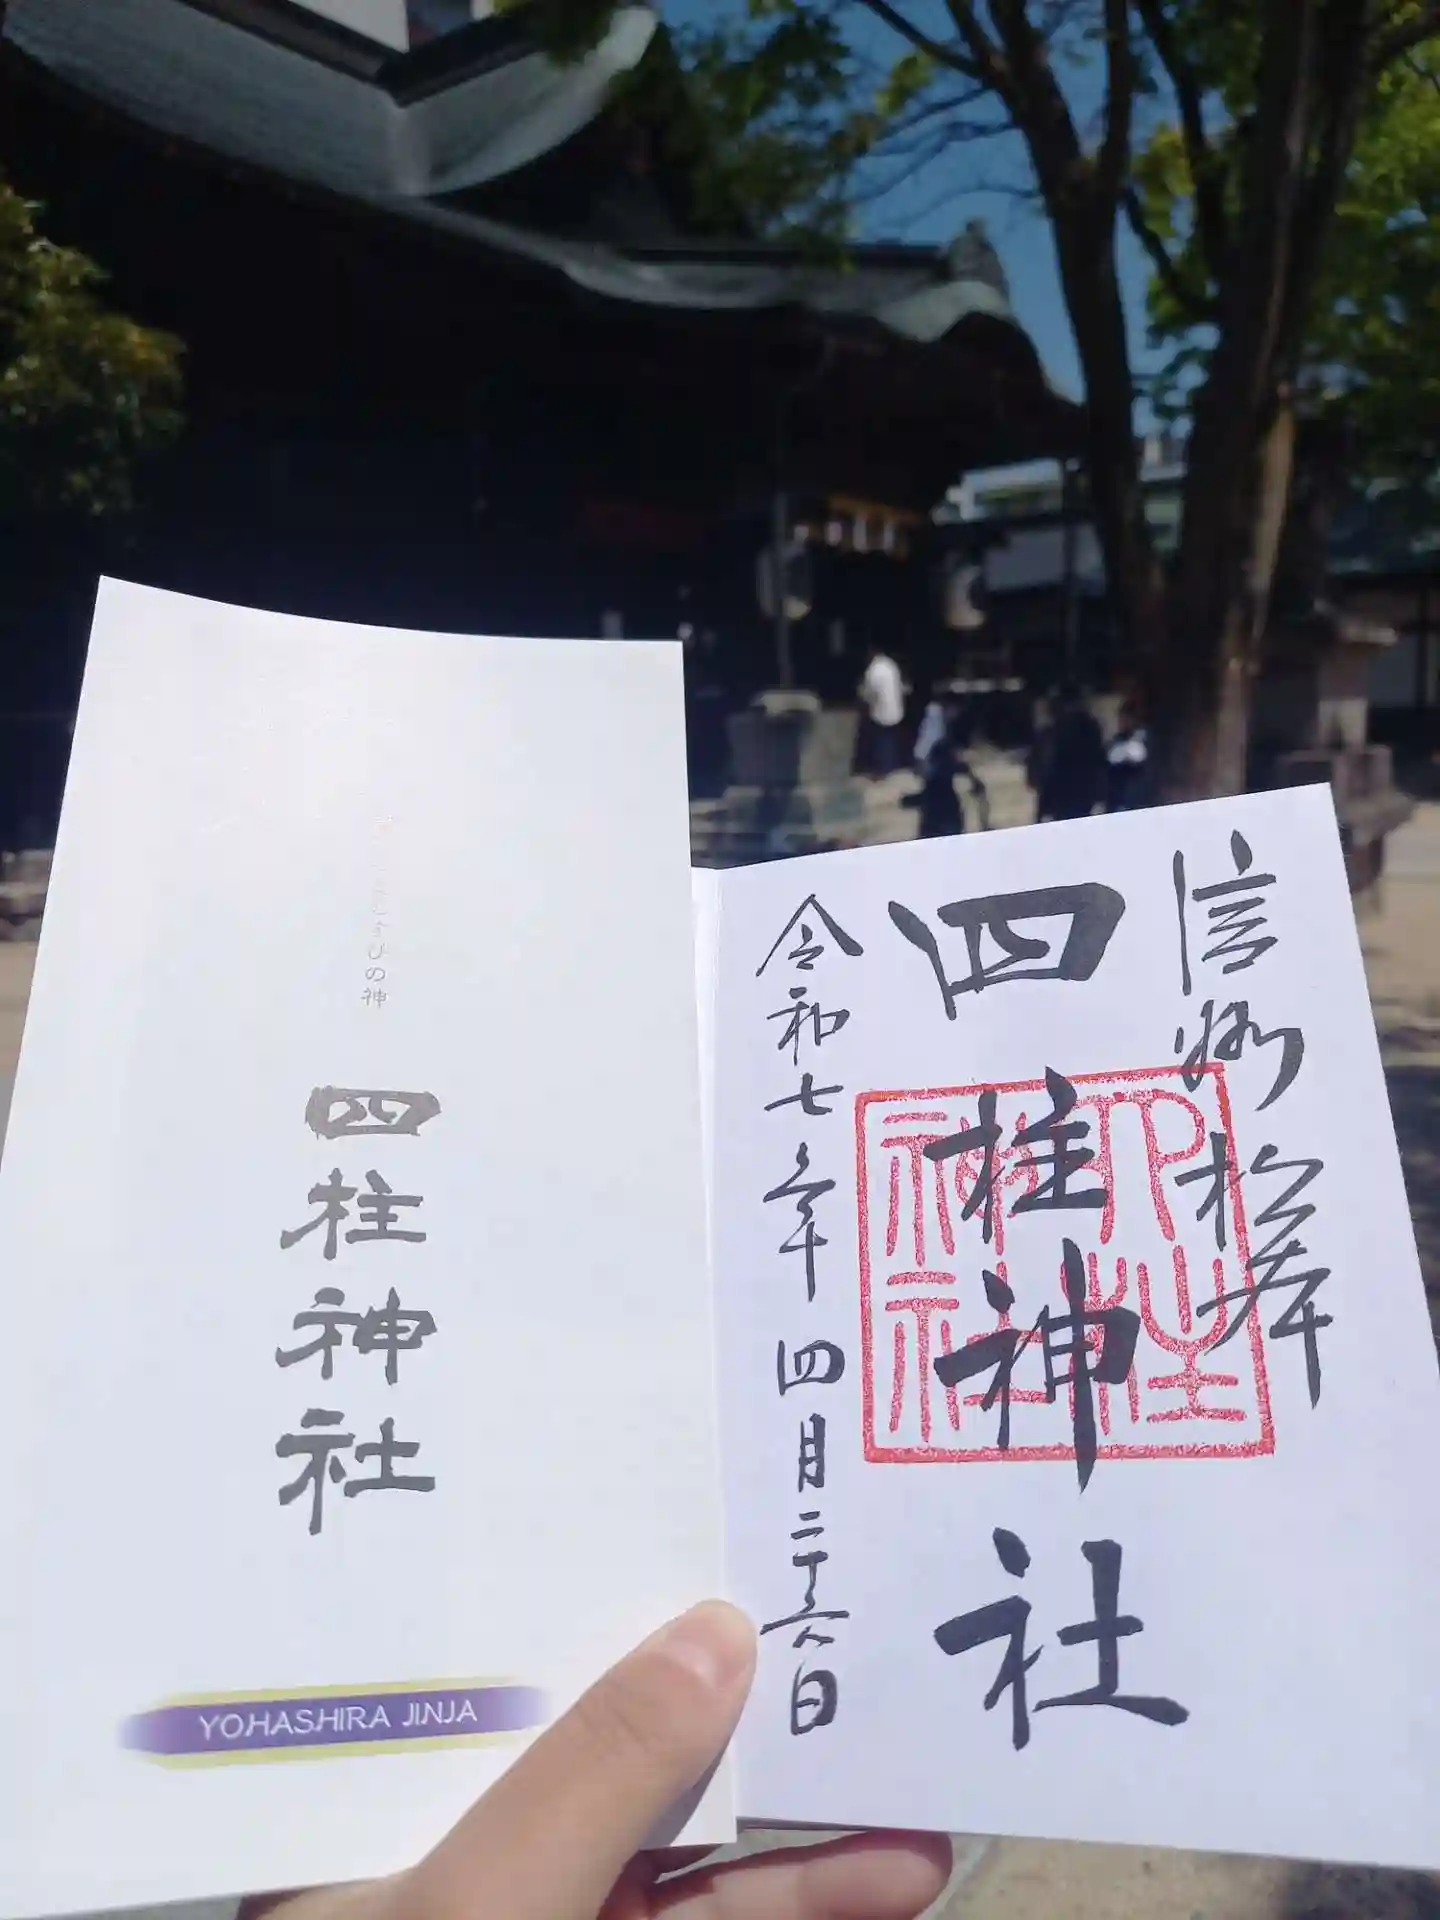 むすびの神
四柱神社
YOHASHIRA JINJA
信州松本
四柱神社
四柱神社
令和七年四月二十六日